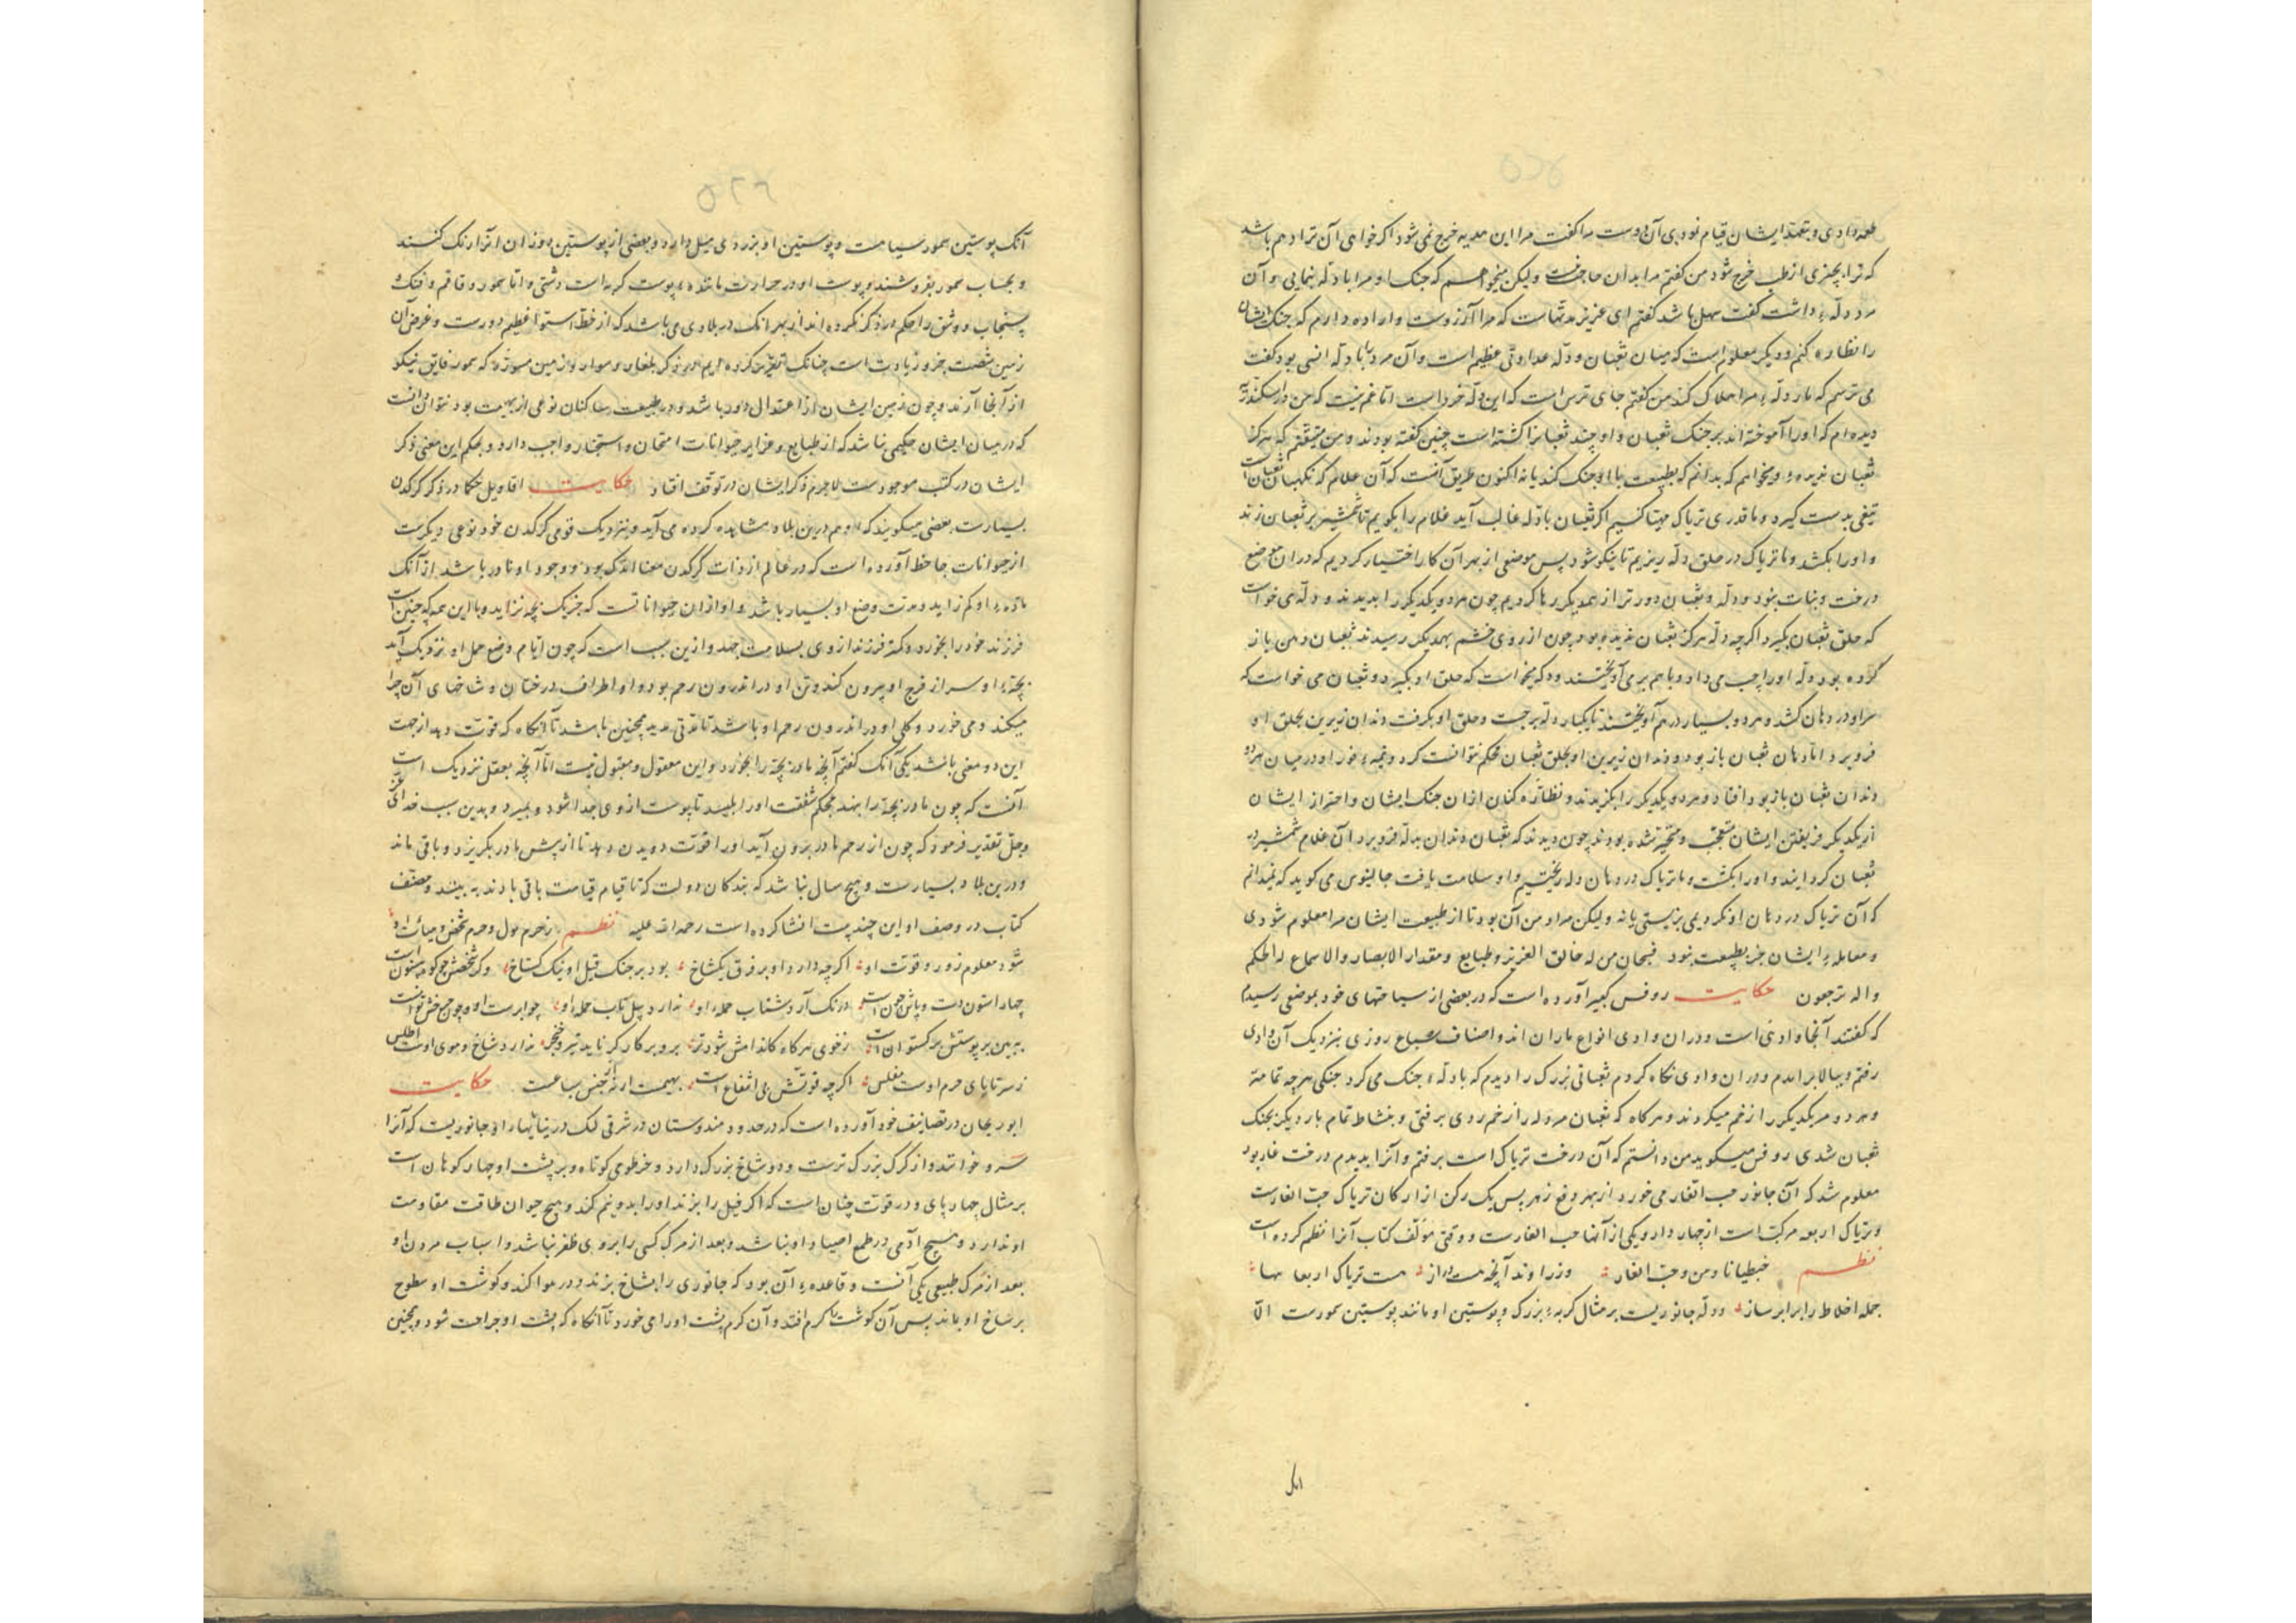 طعمه دادی و بتعهد ایشان قیام نمودی آن دوست مرا گفت مرا این هدیه خرج نمی‌شود اگر خواهی آن ترا دهم باشد
که ترا بچیزی از طب خرج شود من گفتم مرا بدان حاجت نیست ولیکن میخواهم که جنک او مرا با دلّه بنمایی و آن
مرد دلّهٔ داشت گفت سهل باشد گفتم ای عزیز مدتهاست که مرا آرزوست و اراده دارم که جنک ایشان
را نظاره کنم و دیگر معلوم است که میان ثعبان و دلّه عداوتی عظیم است و آن مرد را با دلّه انسی بود گفت
می ترسم که مار دلّهٔ مرا هلاک کند من گفتم جای ترس است که این دلّه خرد است اما غم نیست که من در اسکندریه
دیده‌ام که او را آموخته‌اند بر جنک ثعبان و او چند ثعبانرا کشته است چنین گفته بودند و من متیقنم که هرگز
ثعبان ندیده و میخواهم که بدانم که بطبیعت با او جنک کند یا نه اکنون طریق آنست که آن غلام که نکهبان ثعبان است
تیغی بدست گیرد و ما قدری تریاک مهیا کنیم اگر ثعبان با دلّه غالب آید غلام را بگویم تا شمشیر بر ثعبان زند
و او را بکشد و ما تریاک در حلق دلّه ریزیم تا نیکو شود پس موضعی از بهر آن کار اختیار کردیم که در ان موضع
درخت و نبات نبود و دلّه و ثعبان دورتر از همدیگر رها کردیم چون هر دو یکدیگر را بدیدند و دلّه می خواست
که حلق ثعبان بگیرد اگرچه دلّه هرگز ثعبان ندیده بود چون از روی خشم بهمدیگر رسیدند ثعبان دهن باز
کرده بود و دلّه او را چپ می داد و باهم بر می آویختند و دلّه میخواست که حلق او بگیرد و ثعبان می خواست که
سر او در دهان کشد و هر دو بسیار در هم آویختند تا یکبار دلّه برجست و حلق او بگرفت و دندان زیرین بحلق او
فرو برد اما دهان ثعبان باز بود و دندان زیرین او بحلق ثعبان محکم نتوانست کرد
دندان ثعبان باز بود افتاد و هر دو یکدیگر را بگزیدند و نظاره کنان از ان جنک ایشان و احتراز ایشان
از یکدیگر و فریفتن ایشان متعجب و متحیر شده بودند چون دیدند که ثعبان دندان بدلّه فرو برد آن غلام شمشیر بر
ثعبان گردانید و او را بکشت و ما تریاک در دهان دله ریختیم و او سلامت یافت جالینوس می گوید که نمیدانم
که آن تریاک در دهان او نکردیمی بزیستی یا نه ولیکن مراد من آن بود تا از طبیعت ایشان مرا معلوم شودی
و معاملهٔ ایشان جز بطبیعت نبود فسبحان من له خالق الغریز و طبایع و مقدار الابصار والاسماع له الحکم
و الیه ترجعون حکایت روفس کبیر آورده است که در بعضی از سیاحتهای خود بموضعی رسیدم
که گفتند آنجا وادئی است و در ان وادی انواع ماران اند و اصناف سباع روزی بنزدیک آن وادی
رفتم و ببالا برآمدم و در ان وادی نگاه کردم ثعبانی بزرک را دیدم که با دلّهٔ جنک می کرد جنکی هرچه تمامتر
و هر دو مر یکدیگر را زخم میکردند و هرگاه که ثعبان مر دله را زخم زدی برفتی و بنشاط تمام بار دیگر بجنک
ثعبان شدی روفس میگوید من دانستم که آن درخت تریاک است برفتم و آنرا بدیدم درخت غار بود
معلوم شد که آن جانور حب الغار می خورد از بهر دفع زهر پس یک رکن از ارکان تریاک حب الغارست
و تریاک اربعه مرکبست از چهار دارو یکی از آنها حب الغارست و وقتی مؤلف کتاب آنرا نظم کرده است
نظم جنطیانا و من و حب الغار وز راوند آنچه هست دراز هست تریاک اربعا بها
جمله اخلاط را برابر ساز و دلّه جانوریست بر مثال کربهٔ بزرک و پوستین او مانند پوستین سمورست الّا
آنک پوستین سمور سیاهست و پوستین او بزردی میل دارد و بعضی از پوستین دوزان آنرا رنک کنند
و بحساب سمور بفروشند و پوست او در حرارت مانندهٔ پوست کربه است دشتی و اما سمور و قاقم و فنک
و سنجاب و وشق را حکم در ذکر نکرده اند از بهر آنک در بلادی می باشد که از خط استوا عظیم دورست و عرض آن
زمین شصت جزو زیادت است چنانک تقریر کرده ایم در ذکر بلغار و سوار و از زمین سوار که سمور فایق نیکو
از آنجا آرند و چون زمین ایشان از اعتدال دور باشد و در طبیعت ساکنان نوعی از بهیمیت بود نتوان دانست
که در میان ایشان حکیمی باشد که از طبایع و غرایز حیوانات امتحان و استخبار واجب دارد و بحکم این معنی ذکر
ایشان در کتب موجودست لاجرم ذکر ایشان در توقف افتاد حکایت اقاویل حکما در ذکر کرکدن
بسیارست بعضی میگویند که او هم درین بلاد مشاهده کرده می آید و بنزدیک قومی کرکدن خود نوعی دیگرست
از حیوانات جاحظ آورده است که در عالم از ذات کرکدن همانا اندک بود و وجود او نادر باشد از آنک
مادهٔ او کم زاید و مدت وضع او بسیار باشد و او از ان حیوانات است که جز یک بچه نزاید و با این همه که چنین است
فرزند خود را بخورد و کم فرزند از وی بسلامت جهد و ازین سبب است که چون ایام وضع حمل او نزدیک آید
بچهٔ او سر از فرج او بیرون کند و تن او در اندرون رحم بود و او اطراف درختان و شاخهای آن چرا
میکند و می خورد و کلی او در اندرون رحم او باشد تا مدتی مدید همچنین باشد تا آنگاه که قوت دهد از جهت
این دو معنی باشد یکی آنک گفتم آنچه مادر بچه را بخورد و این معقول و مقبول نیست اما آنچه بعقل نزدیک است
آنست که چون مادر بچه را بیند بحکم شفقت او را بلیسد تا پوست از وی جدا شود و بمیرد و بدین سبب خدای عز
و جل تقدیر فرمود که چون از رحم مادر برون آید او را قوت دویدن دهد تا از پیش مادر بگریزد و باقی ماند
و درین بلاد بسیارست و هیچ سال نباشد که بندکان دولت که تا قیام قیامت باقی بادند به بینند و مصنف
کتاب در وصف او این چند بیت انشا کرده است رحمة الله علیه نظم
شود معلوم زور و قوت او اگرچه دارد او بر فرق یکشاخ بود بر جنک فیل او نیک کستاخ
درنک آرد شتاب حمله او ندارد پیل تاب حمله او
ببین بر پوستش برکستوان است
ز سر تا پای جرم اوست مفلس اگرچه قوتش بی انتفاع است بهیمت ارنه از جنس سباعست حکایت
ابوریحان در تصانیف خود آورده است که در حدود هندوستان در شرقی کنک در بیابانها راو جانوریست که آنرا
سرو خوانند و از کرک بزرک ترست و دو شاخ بزرک دارد و خرطومی کوتاه و بر پشت او چهار کوهان است
بر مثال چهار پای و در قوت چنان است که اگر فیل را بزند او را بدو نیم کند و هیچ حیوان طاقت مقاومت
او ندارد و هیچ آدمی در طمع اصطیاد او نباشد و بعد از مرک کسی را بر وی ظفر نباشد و اسباب مردن او
بعد از مرک طبیعی یکی آنست و قاعدهٔ آن بود که جانوری را بشاخ بزند و در هوا کند و کوشت او سطوح
بر شاخ او بماند پس آن کوشت را کرم افتد و آن کرم پشت او را می خورد تا آنگاه که پشت او جراحت شود و همچنین